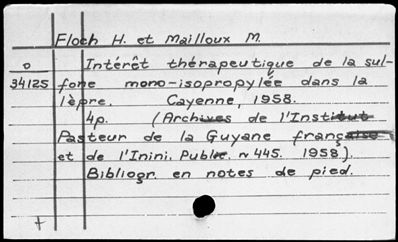 Floch H. et Mailloux M.
o Intérêt thérapeutique de la sul-
34125 fone mono-isopropylée dans la
lèpre. Cayenne, 1958.
4p. (Archives de l'Institut
Pasteur de la Guyane française
et de l'Inini. Publ. n 445. 1958).
Bibliogr. en notes de pied.
+